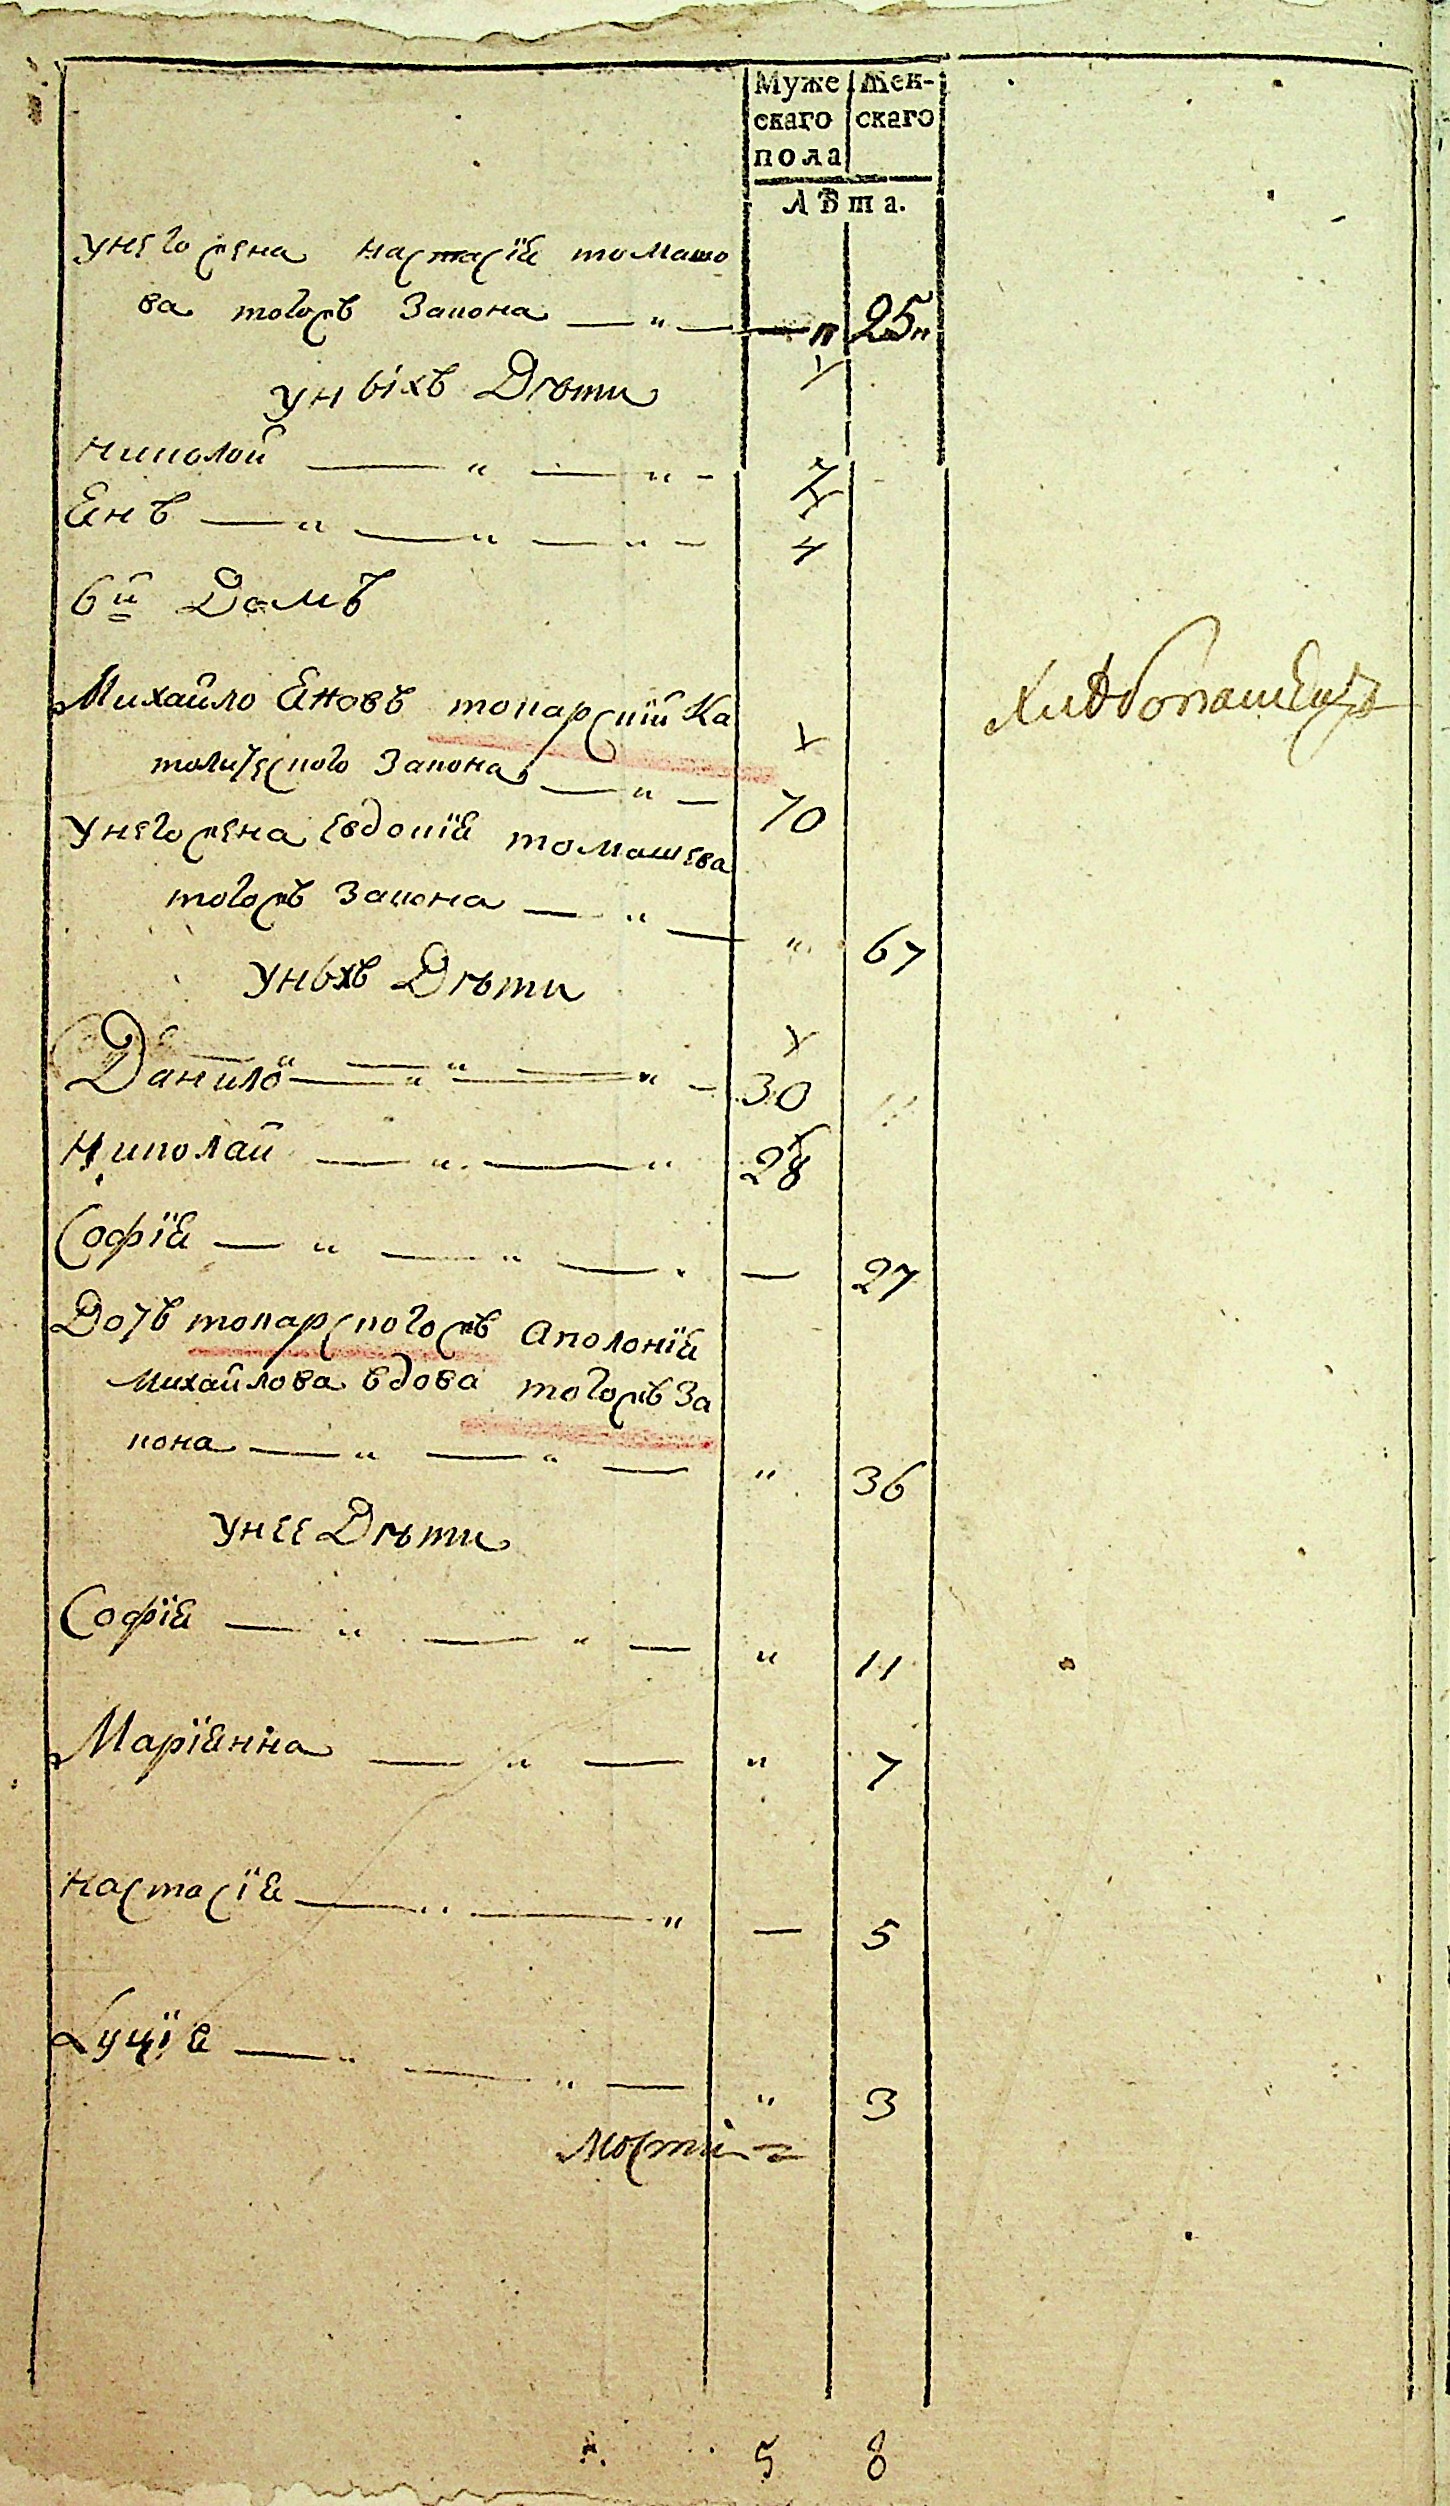 Муже Жен-
скаго скаго
пола
Лѣта.
унего жена настасїя томашо
ва тогожъ Закона — „ — „ 25 „
унЫхъ Дѣти
николай — „ — „ - 7
Янъ — „ — „ — „ - 4
6й Домъ
Михайло Яновъ токарский Ка
толического Закона — „ — 70
унего жена Евдокїя томашева
тогожъ Закона — „ — „ 67
уныхъ Дѣти
Данило — „ — „ - 30
Николай — „ — „ 28
Софїя — „ — „ — . — 27
Дочь токарскогожъ Аполонїя
Михайлова вдова тогожъ За
кона — „ — „ — „ 36
унее Дѣти
Софїя — „ — „ — „ 11
Марїянна — „ — „ 7
настасїя — „ — „ — 5
Луцїя — „ — „ — „ 3
5 8